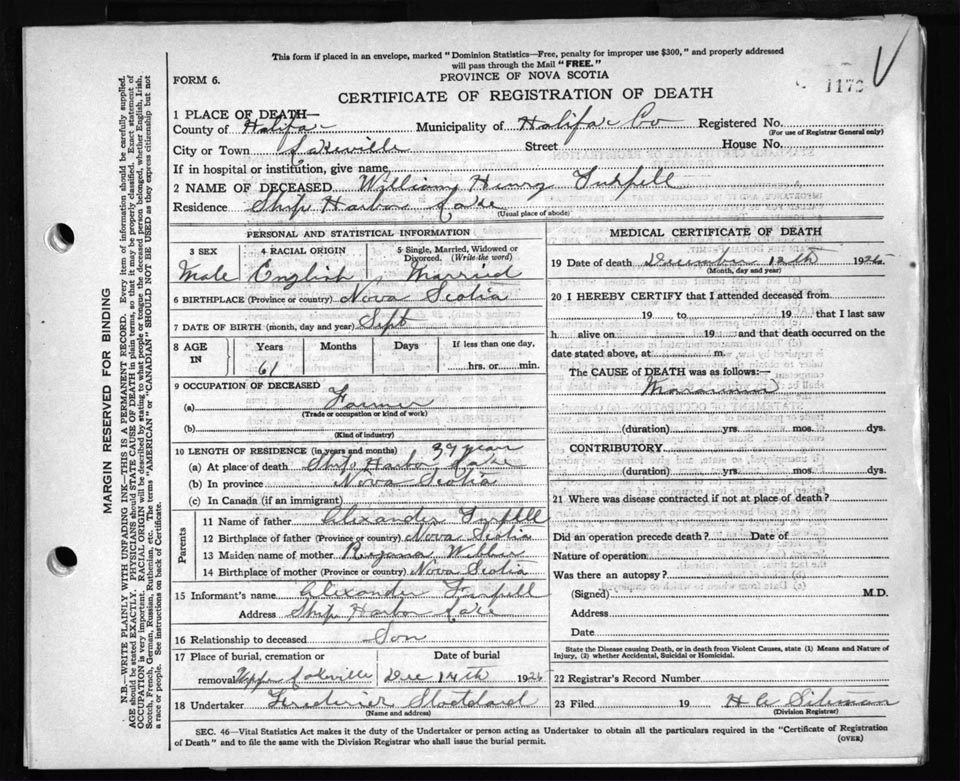 This form if placed in an envelope, marked "Dominion Statistics—Free, penalty for improper use $300," and properly addressed
will pass through the Mail "FREE."
PROVINCE OF NOVA SCOTIA
FORM 6.
1173
CERTIFICATE OF REGISTRATION OF DEATH
1 PLACE OF DEATH—
County of Halifax Municipality of Halifax Co Registered No.
(For use of Registrar General only)
City or Town Lakeville Street House No.
If in hospital or institution, give name,
2 NAME OF DECEASED William Henry
Residence Ship Harbor Lake
(Usual place of abode)
PERSONAL AND STATISTICAL INFORMATION
3 SEX 4 RACIAL ORIGIN 5 Single, Married, Widowed or Divorced. (Write the word)
Male English Married
6 BIRTHPLACE (Province or country) Nova Scotia
7 DATE OF BIRTH (month, day and year) Sept
8 AGE IN Years Months Days If less than one day,
61 hrs. or min.
9 OCCUPATION OF DECEASED
(a) Farmer
(Trade or occupation or kind of work)
(b)
(Kind of industry)
10 LENGTH OF RESIDENCE (in years and months) 39 year
(a) At place of death Ship Harbor Lake
(b) In province Nova Scotia
(c) In Canada (if an immigrant)
Parents
11 Name of father Alexander
12 Birthplace of father (Province or country) Nova Scotia
13 Maiden name of mother
14 Birthplace of mother (Province or country) Nova Scotia
15 Informant's name Alexander
Address Ship Harbor Lake
16 Relationship to deceased Son
17 Place of burial, cremation or Date of burial
removal Upper Lakeville Dec 14th 1926
18 Undertaker Frederick Stoddard
(Name and address)
MEDICAL CERTIFICATE OF DEATH
19 Date of death December 12th 1926
(Month, day and year)
20 I HEREBY CERTIFY that I attended deceased from
19 to 19 that I last saw
h alive on 19 and that death occurred on the
date stated above, at m.
The CAUSE of DEATH was as follows:—
(duration) yrs. mos. dys.
CONTRIBUTORY.
(duration) yrs. mos. dys.
21 Where was disease contracted if not at place of death?
Did an operation precede death? Date of
Nature of operation
Was there an autopsy?
(Signed) M.D.
Address
Date
State the Disease causing Death, or in death from Violent Causes, state (1) Means and Nature of
Injury, (2) whether Accidental, Suicidal or Homicidal.
22 Registrar's Record Number
23 Filed 19
(Division Registrar)
SEC. 46—Vital Statistics Act makes it the duty of the Undertaker or person acting as Undertaker to obtain all the particulars required in the "Certificate of Registration
of Death" and to file the same with the Division Registrar who shall issue the burial permit.
(OVER)
MARGIN RESERVED FOR BINDING
N.B.—WRITE PLAINLY WITH UNFADING INK—THIS IS A PERMANENT RECORD. Every item of information should be carefully supplied.
AGE should be stated EXACTLY. PHYSICIANS should STATE CAUSE OF DEATH in plain terms, so that it may be properly classified. Exact statement of
OCCUPATION is very important. RACIAL ORIGIN will be described by stating to what people or tongue the deceased person belonged, whether English, Irish,
Scotch, French, German, Russian, Ruthenian, etc. The terms "AMERICAN" or "CANADIAN" SHOULD NOT BE USED as they express citizenship but not
a race or people. See instructions on back of Certificate.